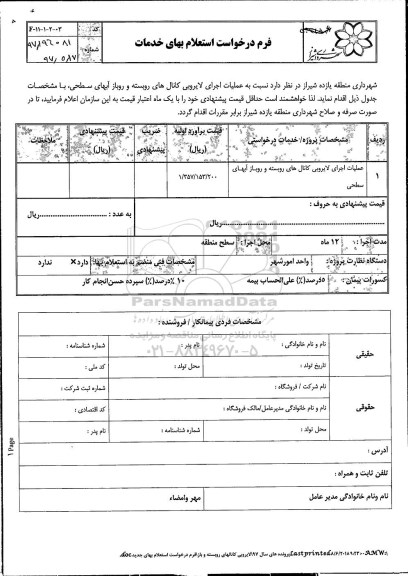 فرم درخواست استعلام بهای خدمات
کد: F-۱۱-۱-۲۰۰۲
شماره:
شهرداری منطقه یازده شیراز در نظر دارد نسبت به عملیات اجرای لایروبی کانال های روبسته و روباز آبهای سطحی، با مشخصات
جدول ذیل اقدام نماید. لذا خواهشمند است حداقل قیمت پیشنهادی خود را با یک ماه اعتبار قیمت به این سازمان اعلام فرمایید، تا در
صورت صرفه و صلاح شهرداری منطقه یازده شیراز برابر مقررات اقدام گردد.
ردیف مشخصات پروژه/ خدمات درخواستی قیمت برآورد اولیه (ریال) ضریب پیشنهادی قیمت پیشنهادی (ریال) ملاحظات
۱ عملیات اجرای لایروبی کانال های روبسته و روباز آبهای سطحی ۱/۳۵۷/۱۵۳/۲۰۰
قیمت پیشنهادی به حروف :
ریال به عدد : ریال
مدت اجرا : ۱۲ ماه محل اجرا : سطح منطقه
دستگاه نظارت پروژه: واحد امورشهر مشخصات فنی منضم به استعلام بها: دارد× ندارد
کسورات پیمان: ۵درصد(٪) علی‌الحساب بیمه ۱۰ ٪درصد(٪) سپرده حسن‌انجام کار
ParsNamadData
۰۲۱-۸۸۳۴۹۶۷۰-۵
مشخصات فردی پیمانکار / فروشنده :
حقیقی
نام و نام خانوادگی : نام پدر : شماره شناسنامه :
تاریخ تولد : محل تولد : کد ملی :
حقوقی
نام شرکت / فروشگاه : شماره ثبت شرکت :
نام و نام خانوادگی مدیرعامل/مالک فروشگاه : کد اقتصادی :
محل تولد : شماره شناسنامه : نام پدر :
آدرس :
تلفن ثابت و همراه :
نام ونام خانوادگی مدیر عامل مهر وامضاء
1 Page